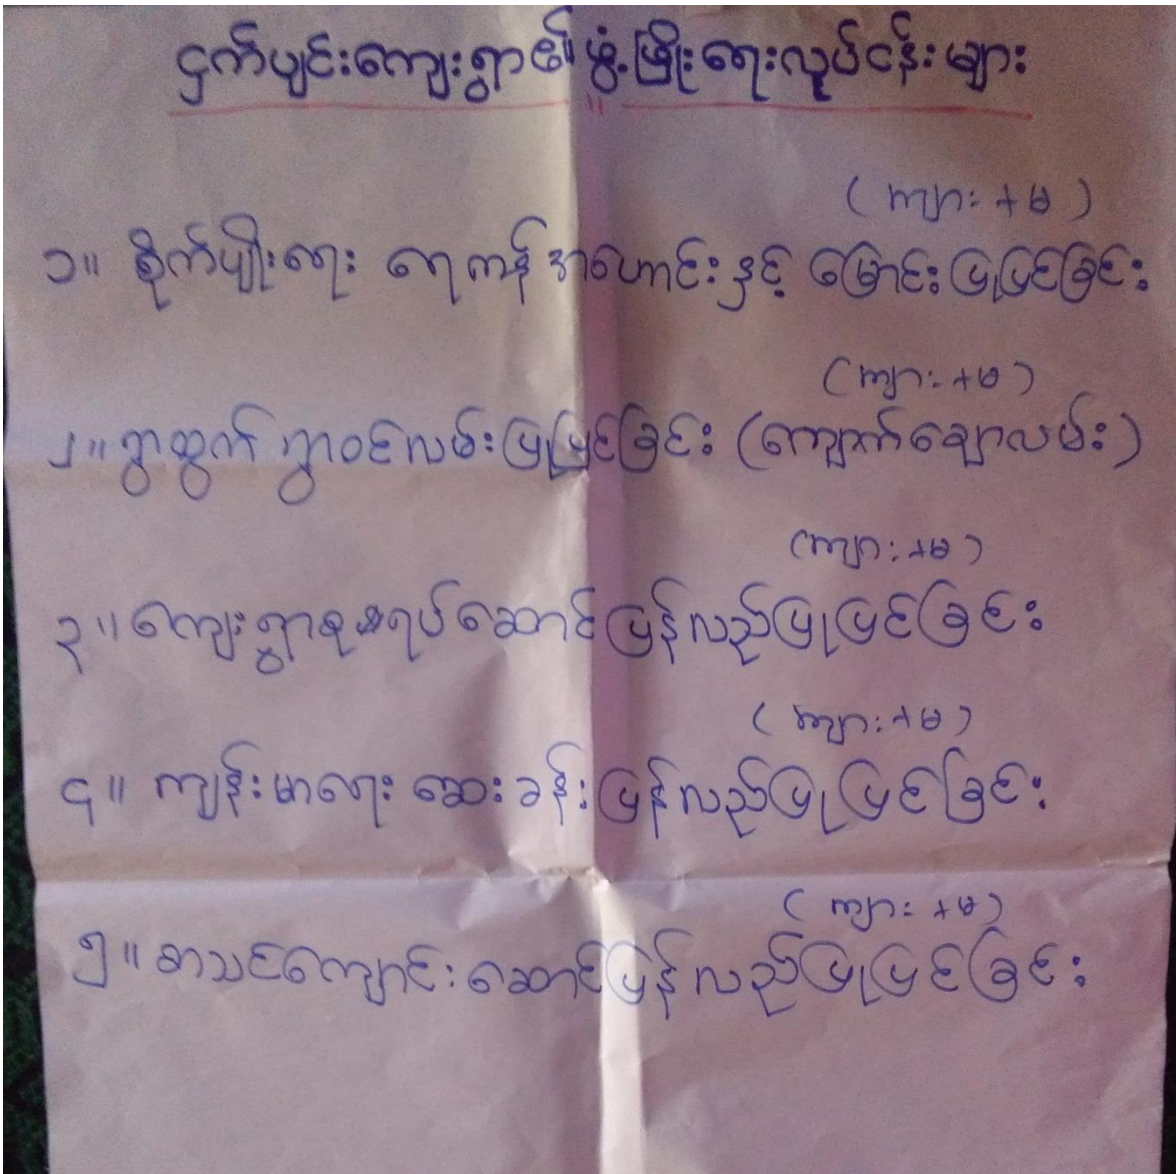 ငှက်ပျင်းကျေးရွာ၏ ဖွံ့ဖြိုးရေးလုပ်ငန်းများ
(ကျား + မ)
၁။ စိုက်ပျိုးရေး ရေကန်အဟောင်းနှင့် မြောင်းပြုပြင်ခြင်း
(ကျား + မ)
၂။ ရွာထွက် ရွာဝင်လမ်းပြုပြင်ခြင်း (ကျောက်ချောလမ်း)
(ကျား + မ)
၃။ ကျေးရွာစုဇရပ်ဆောင်ပြန်လည်ပြုပြင်ခြင်း
(ကျား + မ)
၄။ ကျန်းမာရေး ဆေးခန်းပြန်လည်ပြုပြင်ခြင်း
(ကျား + မ)
၅။ စာသင်ကျောင်းဆောင်ပြန်လည်ပြုပြင်ခြင်း